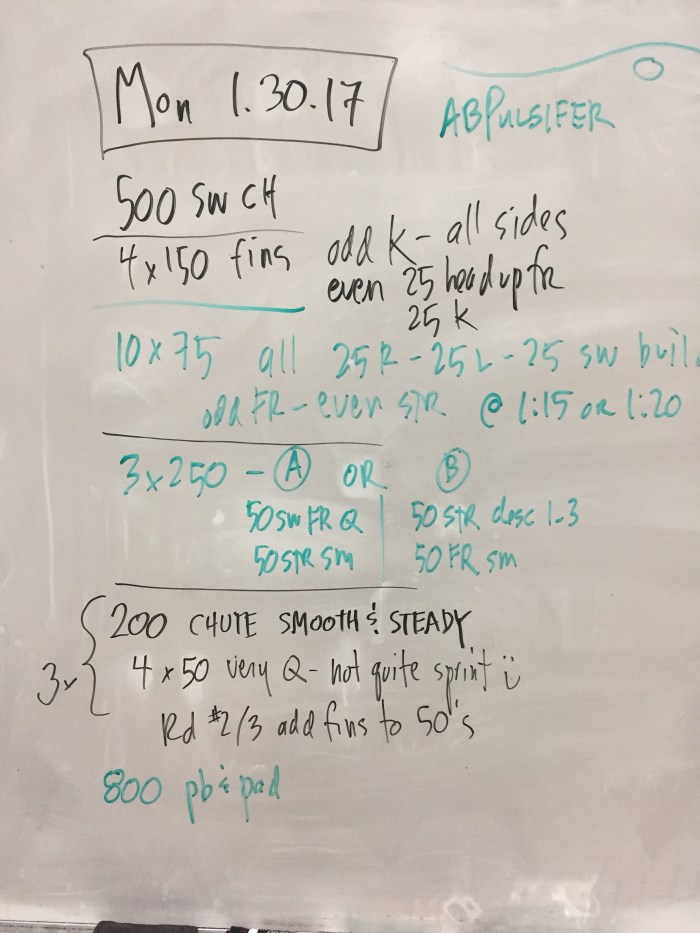 Mon 1.30.17
ABPULSIFER
500 SW CH
4x150 fins
odd K - all sides
even 25 head up fr
25 K
10 x 75 all 25R - 25L - 25 SW buil
odd FR - even STR @ 1:15 OR 1:20
3x250 - A OR B
50 SW FR Q
50 STR desc 1-3
50 STR sm
50 FR sm
200 CHUTE SMOOTH & STEADY
3x
4 x 50 very Q - not quite sprint ü
Rd #2/3 add fins to 50's
800 pb & pad